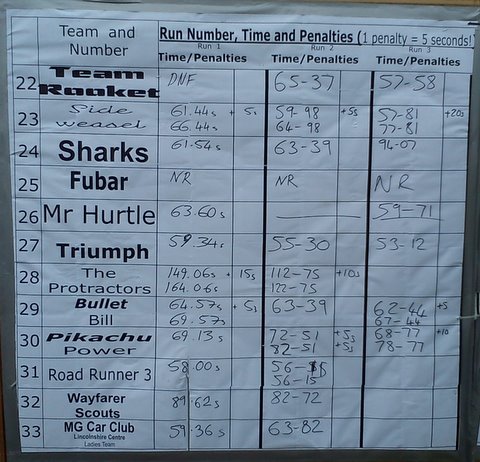 Team and Number Run Number, Time and Penalties (1 penalty = 5 seconds!)
Run 1 Run 2 Run 3
Time/Penalties Time/Penalties Time/Penalties
22 Team Rooket DNF 65-37 57-58
23 Side weasel 61.44s + 5s 59-98 +5s 57-81 +20s
66.44s 64-98 77-81
24 Sharks 61.54s 63-39 94-07
25 Fubar NR NR NR
26 Mr Hurtle 63.60s 59-71
27 Triumph 59.34s 55-30 53-12
28 The Protractors 149.06s + 15s 112-75 +10s
164.06s 122-75
29 Bullet Bill 64.57s + 5s 63-39 62-44 +5
69.57s 67-44
30 Pikachu Power 69.13s 72-51 +5s 68-77 +10
82-51 +5s 78-77
31 Road Runner 3 58.00s 56-
56-15
32 Wayfarer Scouts 89.62s 82-72
33 MG Car Club 59.36s 63-82
Lincolnshire Centre
Ladies Team